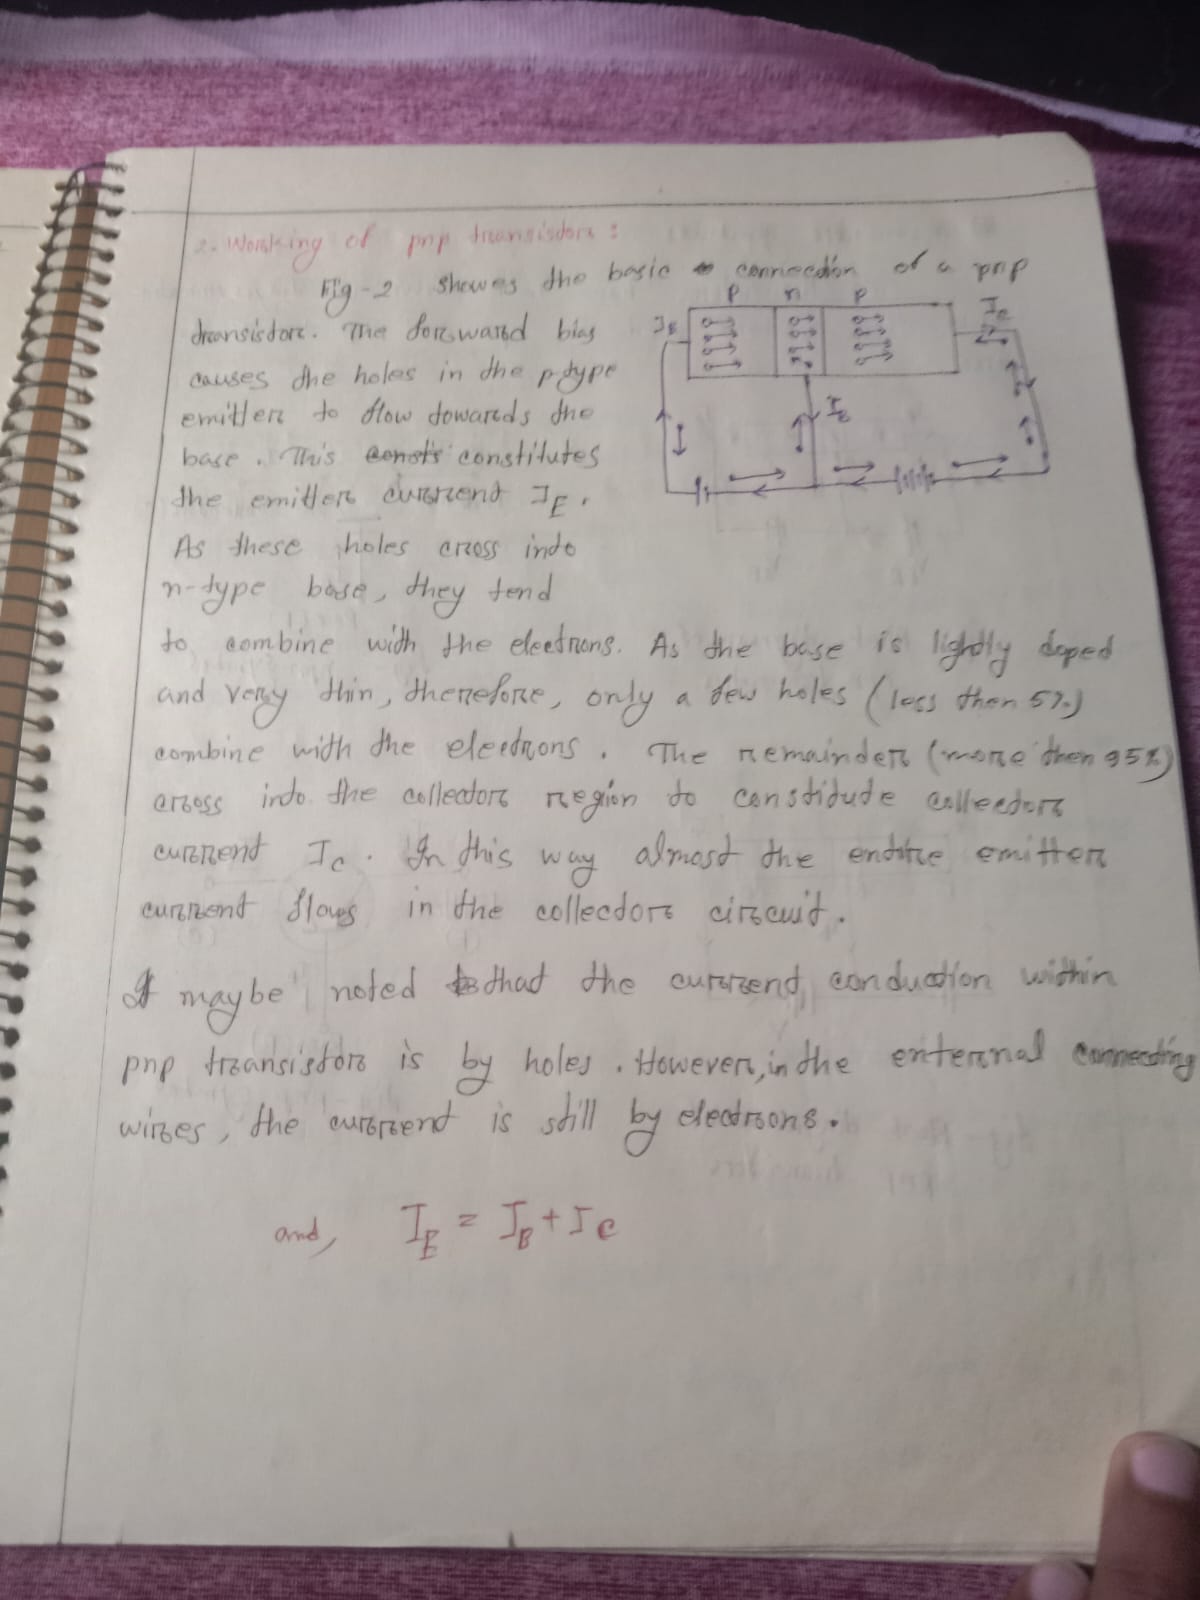 2. Working of pnp transistor :
Fig-2 showes the basic connection of a pnp
transistor. The forward bias
causes the holes in the p-type
emitter to flow towards the
base. This consts constitutes
the emitter current IE.
As these holes cross into
n-type base, they tend
to combine with the electrons. As the base is lightly doped
and very thin, therefore, only a few holes (less then 5%)
combine with the electrons. The remainder (more then 95%)
cross into the collector region to constitude collector
current Ic. In this way almost the entire emitter
current flows in the collector circuit.
It maybe noted that the current conduction within
pnp transistor is by holes. However, in the external connecting
wires, the current is still by electrons.
and, IE = IB + Ic
p n p
IE
IB